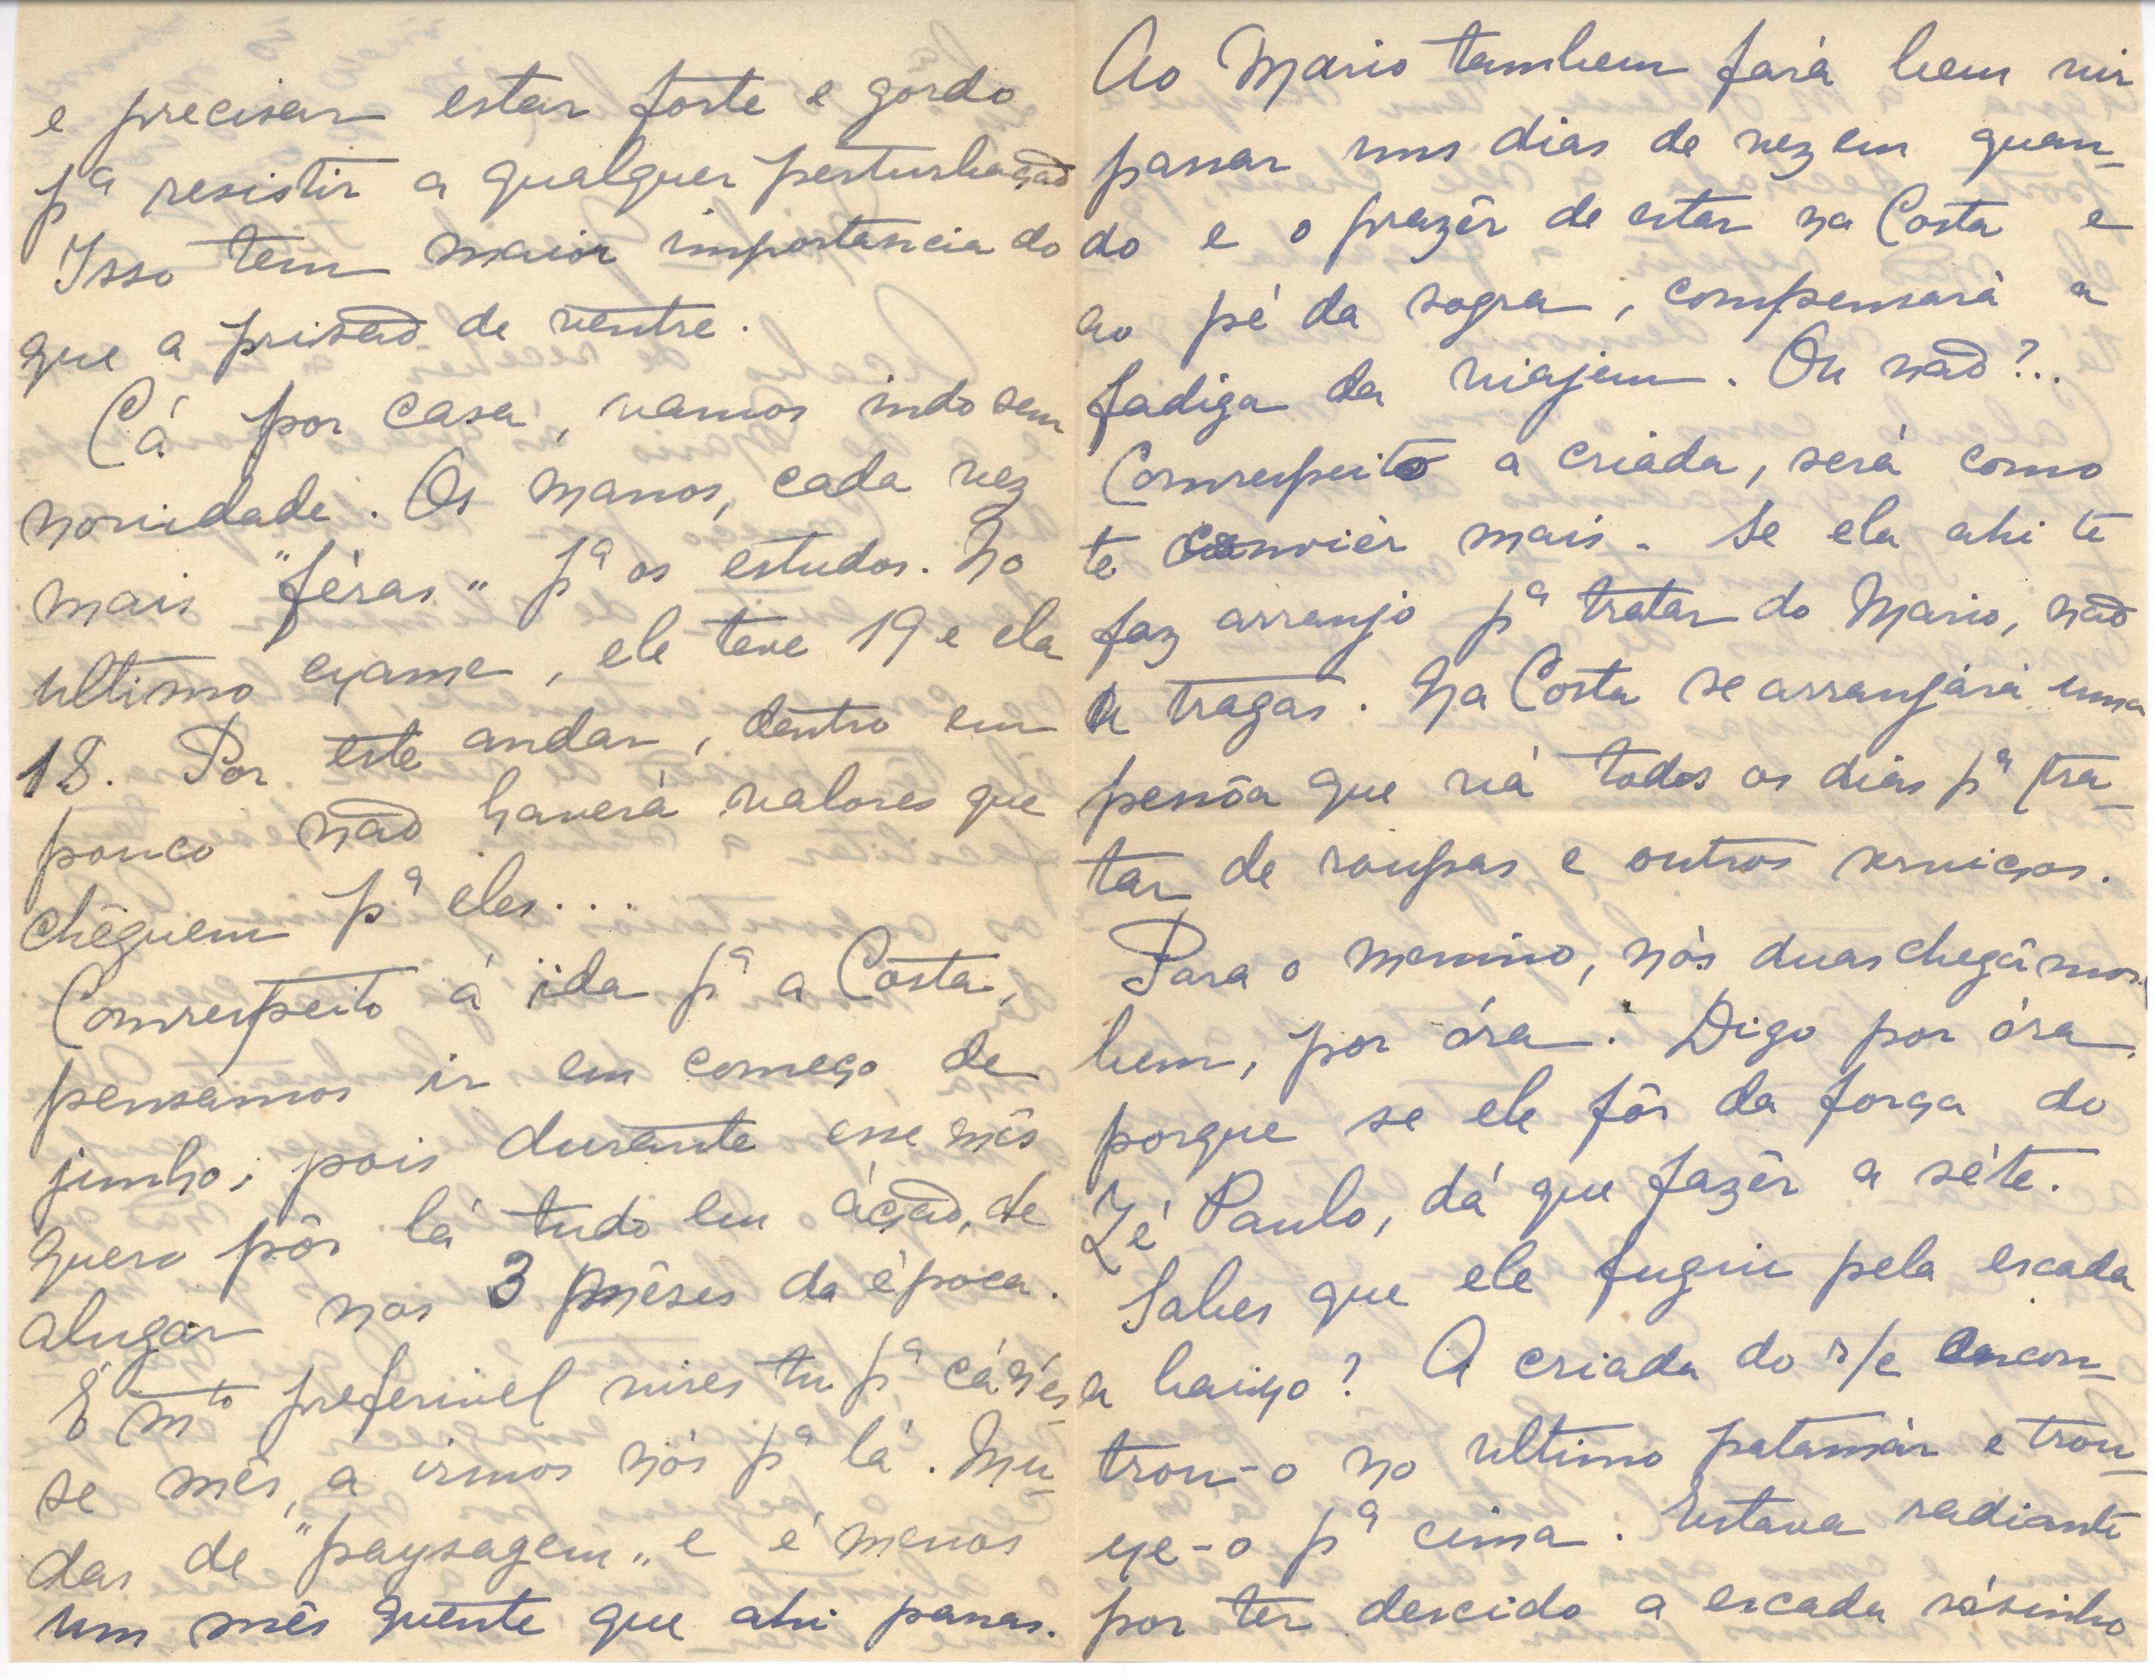 e precisar estar forte e gordo
pª resistir a qualquer perturbação
Isso tem maior importancia do
que a prisão de ventre.
Cá por casa, vamos indo sem
novidade. Os manos, cada vez
mais "féras" pª os estudos. No
ultimo exame, ele teve 19 e ela
18. Por este andar, dentro em
pouco não haverá valores que
chêguem pª eles...
Comrespeito á ida pª a Costa,
pensamos ir em começo de
junho; pois durante esse mês
quero pôr lá tudo em ácção, de
alugar nos 3 mêses da época.
É mto preferivel vires tu pª cá n'es-
se mês, a irmos nós pª lá. Mu-
das de "paysagem" e é menos
um mês quente que ahi passas.
Ao Mario tambem fará bem vir
passar uns dias de vez em quan-
do e o prazêr de estar na Costa e
ao pé da sogra, compensará a
fadiga da viajem. Ou não?..
Comrespeito a criada, será como
te convièr mais. Se ela ahi te
faz arranjo pª tratar do Mario, não
a tragas. Na Costa se arranjará uma
pessôa que vá todos os dias pª tra-
tar de roupas e outros serviços.
Para o menino, nós duas chegâmos
bem, por óra. Digo por óra,
porque se ele fôr da força do
Zé Paulo, dá que fazêr a séte.
Sabes que ele fugiu pela escada
a baixo? A criada do r/c encon-
trou-o no ultimo patamár e trou-
xe-o pª cima. Estava radiante
por ter descido a escada sósinho